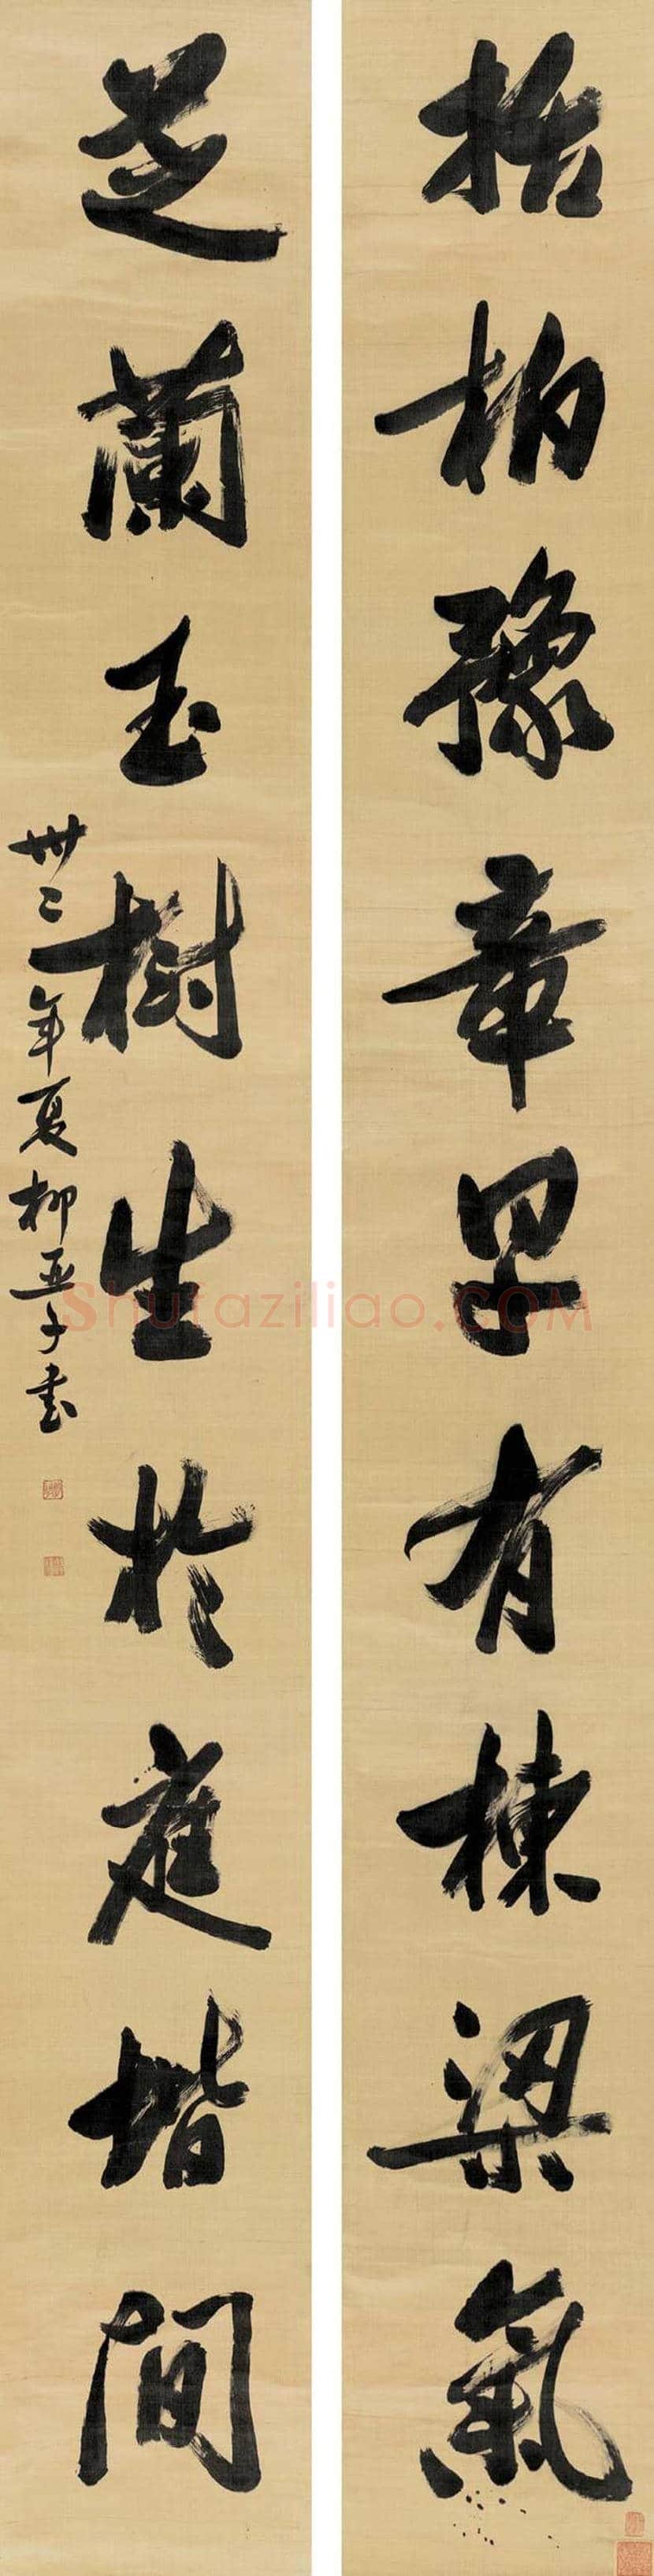 栝柏豫章早有棟梁氣
芝蘭玉樹生於庭堦間
卅二年夏柳亞子書
Shufaziliao.COM